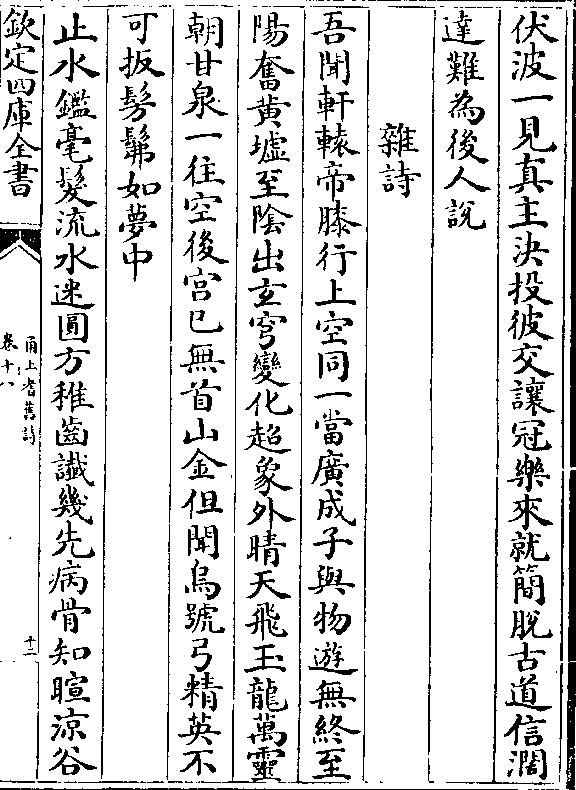 伏波一見真主決投彼交讓冠樂來就簡脫古道信濶
達難為後人說
雜詩
吾聞軒轅帝膝行上空同一當廣成子與物遊無終至
陽奮黄墟至陰出玄穹變化超象外晴天飛玉龍萬靈
朝甘泉一往空後宫已無首山金但聞烏號弓精英不
可扳髣髴如夢中
止水鑑毫髮流水迷圓方稚齒讖幾先病骨知暄涼谷
欽定四庫全書
甬上耆舊詩
卷十八
十二